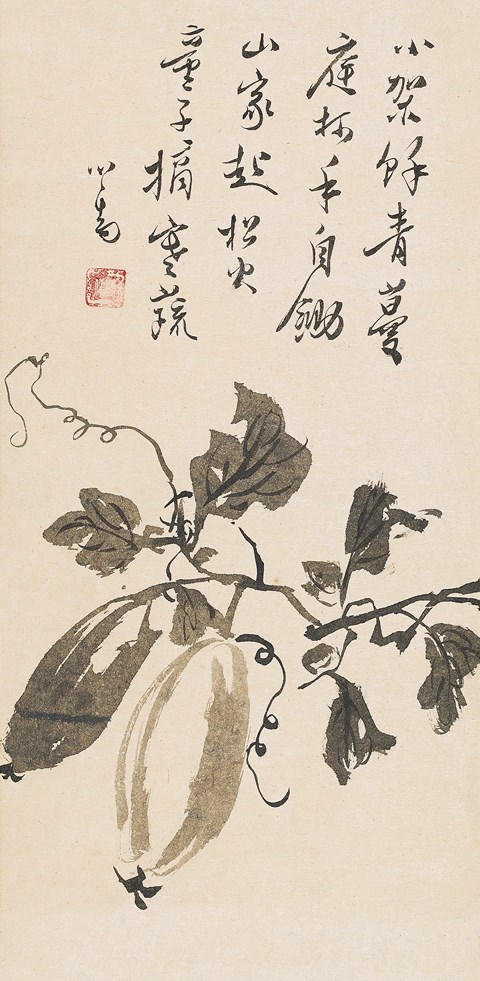 小架餘青蔓
庭柯手自鋤
山家起松火
童子摘寒蔬
心畬